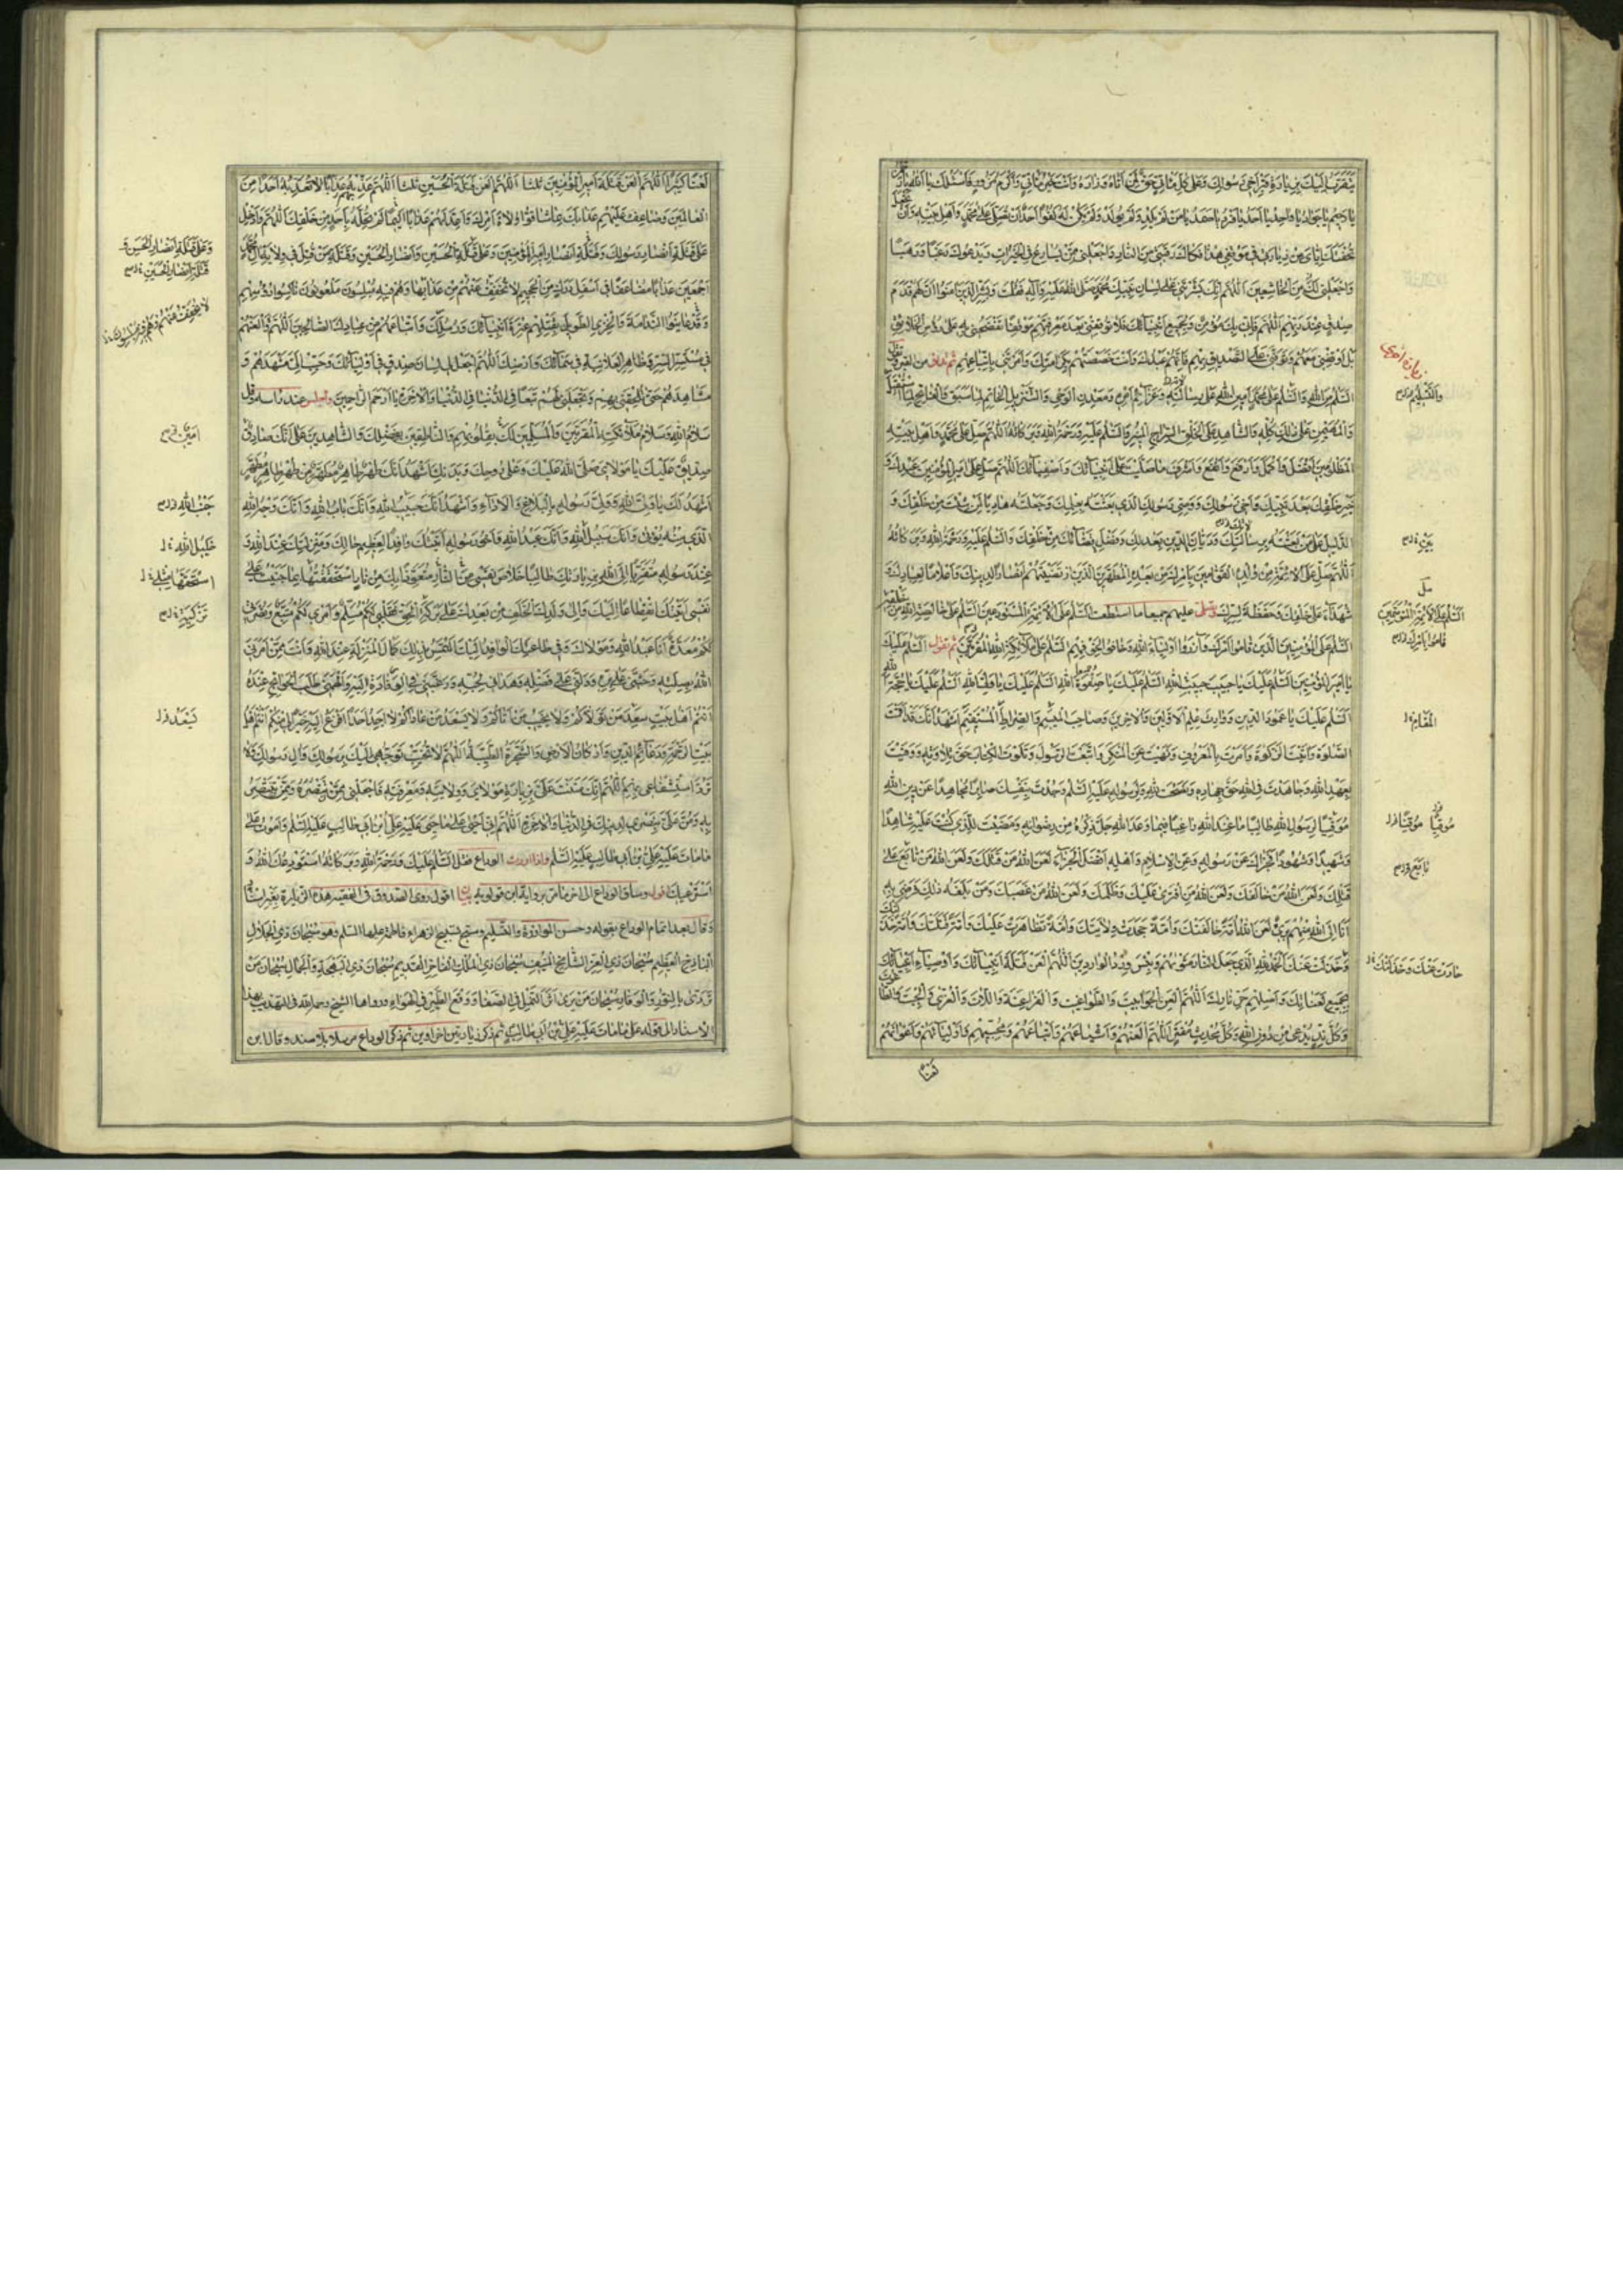 يتقرب اليك بزيارة قبر اخي رسولك وعلى كل ماتي حق لمن اتاه وزاره وانت خير ماتي واكرم مزور فاسئلك يا الله يا رحمن
يا رحيم يا جواد يا واحد يا احد يا فرد يا صمد يا من لم يلد ولم يولد ولم يكن له كفوا احد ان تصلي على محمد واهل بيته وان تجعل
تحفتك اياي من زيارتي في موقفي هذا فكاك رقبتي من النار واجعلني ممن يسارع في الخيرات ويدعوك رغبا ورهبا
واجعلني لك من الخاشعين اللهم انك بشرتني على لسان نبيك محمد صلى الله عليه وآله فقلت وبشر الذين امنوا ان لهم قدم
صدق عند ربهم اللهم فاني بك مؤمن وبجميع انبيائك فلا توقفني بعد معرفتهم موقفا تفضحني به على رؤس الخلائق
بل اوقفني معهم وتوفني على التصديق بهم فانهم عبيدك وانت خصصتهم بكرامتك وامرتني باتباعهم ثم تدنو من القبر وتقول
السلام من الله والسلام على محمد امين الله على رسالته وعزائم امره ومعدن الوحي والتنزيل الخاتم لما سبق والفاتح لما استقبل
والمهيمن على ذلك كله والشاهد على الخلق السراج المنير والسلام عليه ورحمة الله وبركاته اللهم صل على محمد واهل بيته
المظلومين افضل واكمل وارفع وانفع واشرف ما صليت على انبيائك واصفيائك اللهم صل على امير المؤمنين عبدك و
خير خلقك بعد نبيك واخي رسولك ووصي رسولك الذي بعثته بعلمك وجعلته هاديا لمن شئت من خلقك و
الدليل على من بعثته برسالتك وديان الدين بعدلك وفصل قضائك من خلقك والسلام عليه ورحمة الله وبركاته
اللهم صل على الائمة من ولده القوامين بامرك من بعده المطهرين الذين ارتضيتهم انصارا لدينك واعلاما لعبادك و
شهداء على خلقك وحفظة لسرك وتصلي عليهم جميعا ما استطعت السلام على الائمة المستودعين السلام على خالصة الله من خلقه
السلام على المؤمنين الذين قاموا امرك وآزروا اولياء الله وخافوا لخوفهم السلام على ملائكة الله المقربين ثم تقول السلام عليك
يا امير المؤمنين السلام عليك يا حبيب حبيب الله السلام عليك يا صفوة الله السلام عليك يا ولي الله السلام عليك يا حجة الله
السلام عليك يا عمود الدين ووارث علم الاولين والاخرين وصاحب الميسم والصراط المستقيم اشهد انك قد اقمت
الصلوة واتيت الزكوة وامرت بالمعروف ونهيت عن المنكر واتبعت الرسول وتلوت الكتاب حق تلاوته ووفيت
بعهد الله وجاهدت في الله حق جهاده ونصحت لله ولرسوله عليه السلام وجدت بنفسك صابرا مجاهدا عن دين الله
موقيا لرسول الله طالبا ما عند الله راغبا فيما وعد الله جل ذكره من رضوانه ومضيت للذي كنت عليه شاهدا
وشهيدا ومشهودا فجزاك عن رسوله وعن الاسلام واهله افضل الجزاء لعن الله من قتلك ولعن الله من تابع على
قتلك ولعن الله من خالفك ولعن الله من افترى عليك وظلمك ولعن الله من غصبك ومن بلغه ذلك فرضي به
انا الى الله منهم بريء لعن الله امة خالفتك وامة جحدت ولايتك وامة تظاهرت عليك وامة قتلتك وامة حادت عنك
وخذلت عنك الحمد لله الذي جعل النار مثويهم وبئس ورد الواردين اللهم العن قتلة انبيائك واوصياء انبيائك
بجميع لعنائك واصلهم حر نارك اللهم العن الجوابيت والطواغيت والفراعنة واللات والعزى والجبت والطاغوت
وكل ند يدعى من دون الله وكل محدث مفتر اللهم العنهم واشياعهم واتباعهم ومحبيهم واولياءهم واعوانهم
لعنا
زيارة اخرى
والتسليم
السلام على الائمة المتوسمين
تابع
حادت عنك وخذلتك
لعنا كثيرا اللهم العن قتلة امير المؤمنين ثلثا اللهم العن قتلة الحسين ثلثا اللهم عذبهم عذابا لا تعذبه احدا من
العالمين وضاعف عليهم عذابك بما شاقوا ولاة امرك واعد لهم عذابا اليما لم تحله باحد من خلقك اللهم وادخل
على قتلة انصار رسولك وقتلة انصار امير المؤمنين وعلى قتلة الحسين وانصار الحسين وقتلة من قتل في ولاية آل محمد
اجمعين عذابا مضاعفا في اسفل درك من الجحيم لا تخفف عنهم من عذابها وهم فيه مبلسون ملعونون ناكسوا رؤسهم
وقد عاينوا الندامة والخزي الطويل بقتلهم عترة انبيائك ورسلك واتباعهم من عبادك الصالحين اللهم والعنهم
في مستسر السر وظاهر العلانية في سمائك وارضك اللهم اجعل لي لسان صدق في اوليائك وحبب الي مشهدهم و
مشاهدهم حتى تلحقني بهم وتجعلني لهم تبعا في الدنيا والاخرة يا ارحم الراحمين واجلس عند راسه وقل
سلام الله وسلام ملائكته المقربين والمسلمين لك بقلوبهم والناطقين بفضلك والشاهدين على انك صادق
صديق عليك يا مولاي صلى الله عليك وعلى روحك وبدنك اشهد انك طهر طاهر مطهر من طهر طاهر مطهر
اشهد لك يا ولي الله وولي رسوله بالبلاغ والاداء واشهد انك حبيب الله وانك باب الله وانك وجه الله
الذي منه يؤتى وانك سبيل الله وانك عبد الله واخو رسوله اتيتك وافدا لعظيم حالك ومنزلتك عند الله و
عند رسوله متقربا الى الله بزيارتك طالبا خلاص نفسي من النار متعوذا بك من نار استحققتها بما جنيت على
نفسي اتيتك انقطاعا اليك والى ولدك الخلف من بعدك على بركة الحق فقلبي لكم مسلم وامري لكم متبع ونصرتي
لكم معدة انا عبد الله ومولاك وفي طاعتك الوافد اليك التمس بذلك كمال المنزلة عند الله وانت ممن امرني
الله بصلته وحثني على بره ودلني على فضله وهداني لحبه ورغبني في الوفادة اليه والهمني طلب الحوائج عنده
انتم اهل بيت سعد من تولاكم ولا يخيب من اتاكم ولا يسعد من عاداكم لا اجد احدا افزع اليه خيرا لي منكم انتم اهل
بيت الرحمة ودعائم الدين واركان الارض والشجرة الطيبة اللهم لا تخيب توجهي اليك برسولك وال رسولك ولا
ترد استشفاعي بهم اللهم انك مننت علي بزيارة مولاي وولايته ومعرفته فاجعلني ممن تنصره وممن تنتصر
به ومن علي بنصري لدينك في الدنيا والاخرة اللهم اني احيى على ما حيي عليه علي بن ابي طالب عليه السلام واموت على
ما مات عليه علي بن ابي طالب عليه السلام واذا اردت الوداع فقل السلام عليك ورحمة الله وبركاته استودعك الله و
استرعيك قوله وساق الوداع الى اخر ما مر برواية ابن قولويه بيان اقول روى الصدوق في الفقيه هذه الزيارة بغير اسناد
وقال بعد اتمام الوداع بقوله وحسن الموازرة والتسليم وسبح تسبيح الزهراء فاطمة عليها السلام وهو سبحان ذي الجلال
الباذخ العظيم سبحان ذي العز الشامخ المنيف سبحان ذي الملك الفاخر القديم سبحان ذي البهجة والجمال سبحان من
تردى بالنور والوقار سبحان من يرى اثر النمل في الصفا ووقع الطير في الهواء ورواها الشيخ رحمه الله في التهذيب بهذا
الاسناد الى قوله على ما مات عليه علي بن ابي طالب ثم ذكر زيارتين اخراوين ثم ذكر الوداع مرسلا بلا سند وقال ابن
وعلى قتلة انصار الحسن و
قتلة انصار الحسين
امين
جنب الله
خليل الله
استحقها مثلي
تزكية
يسعد